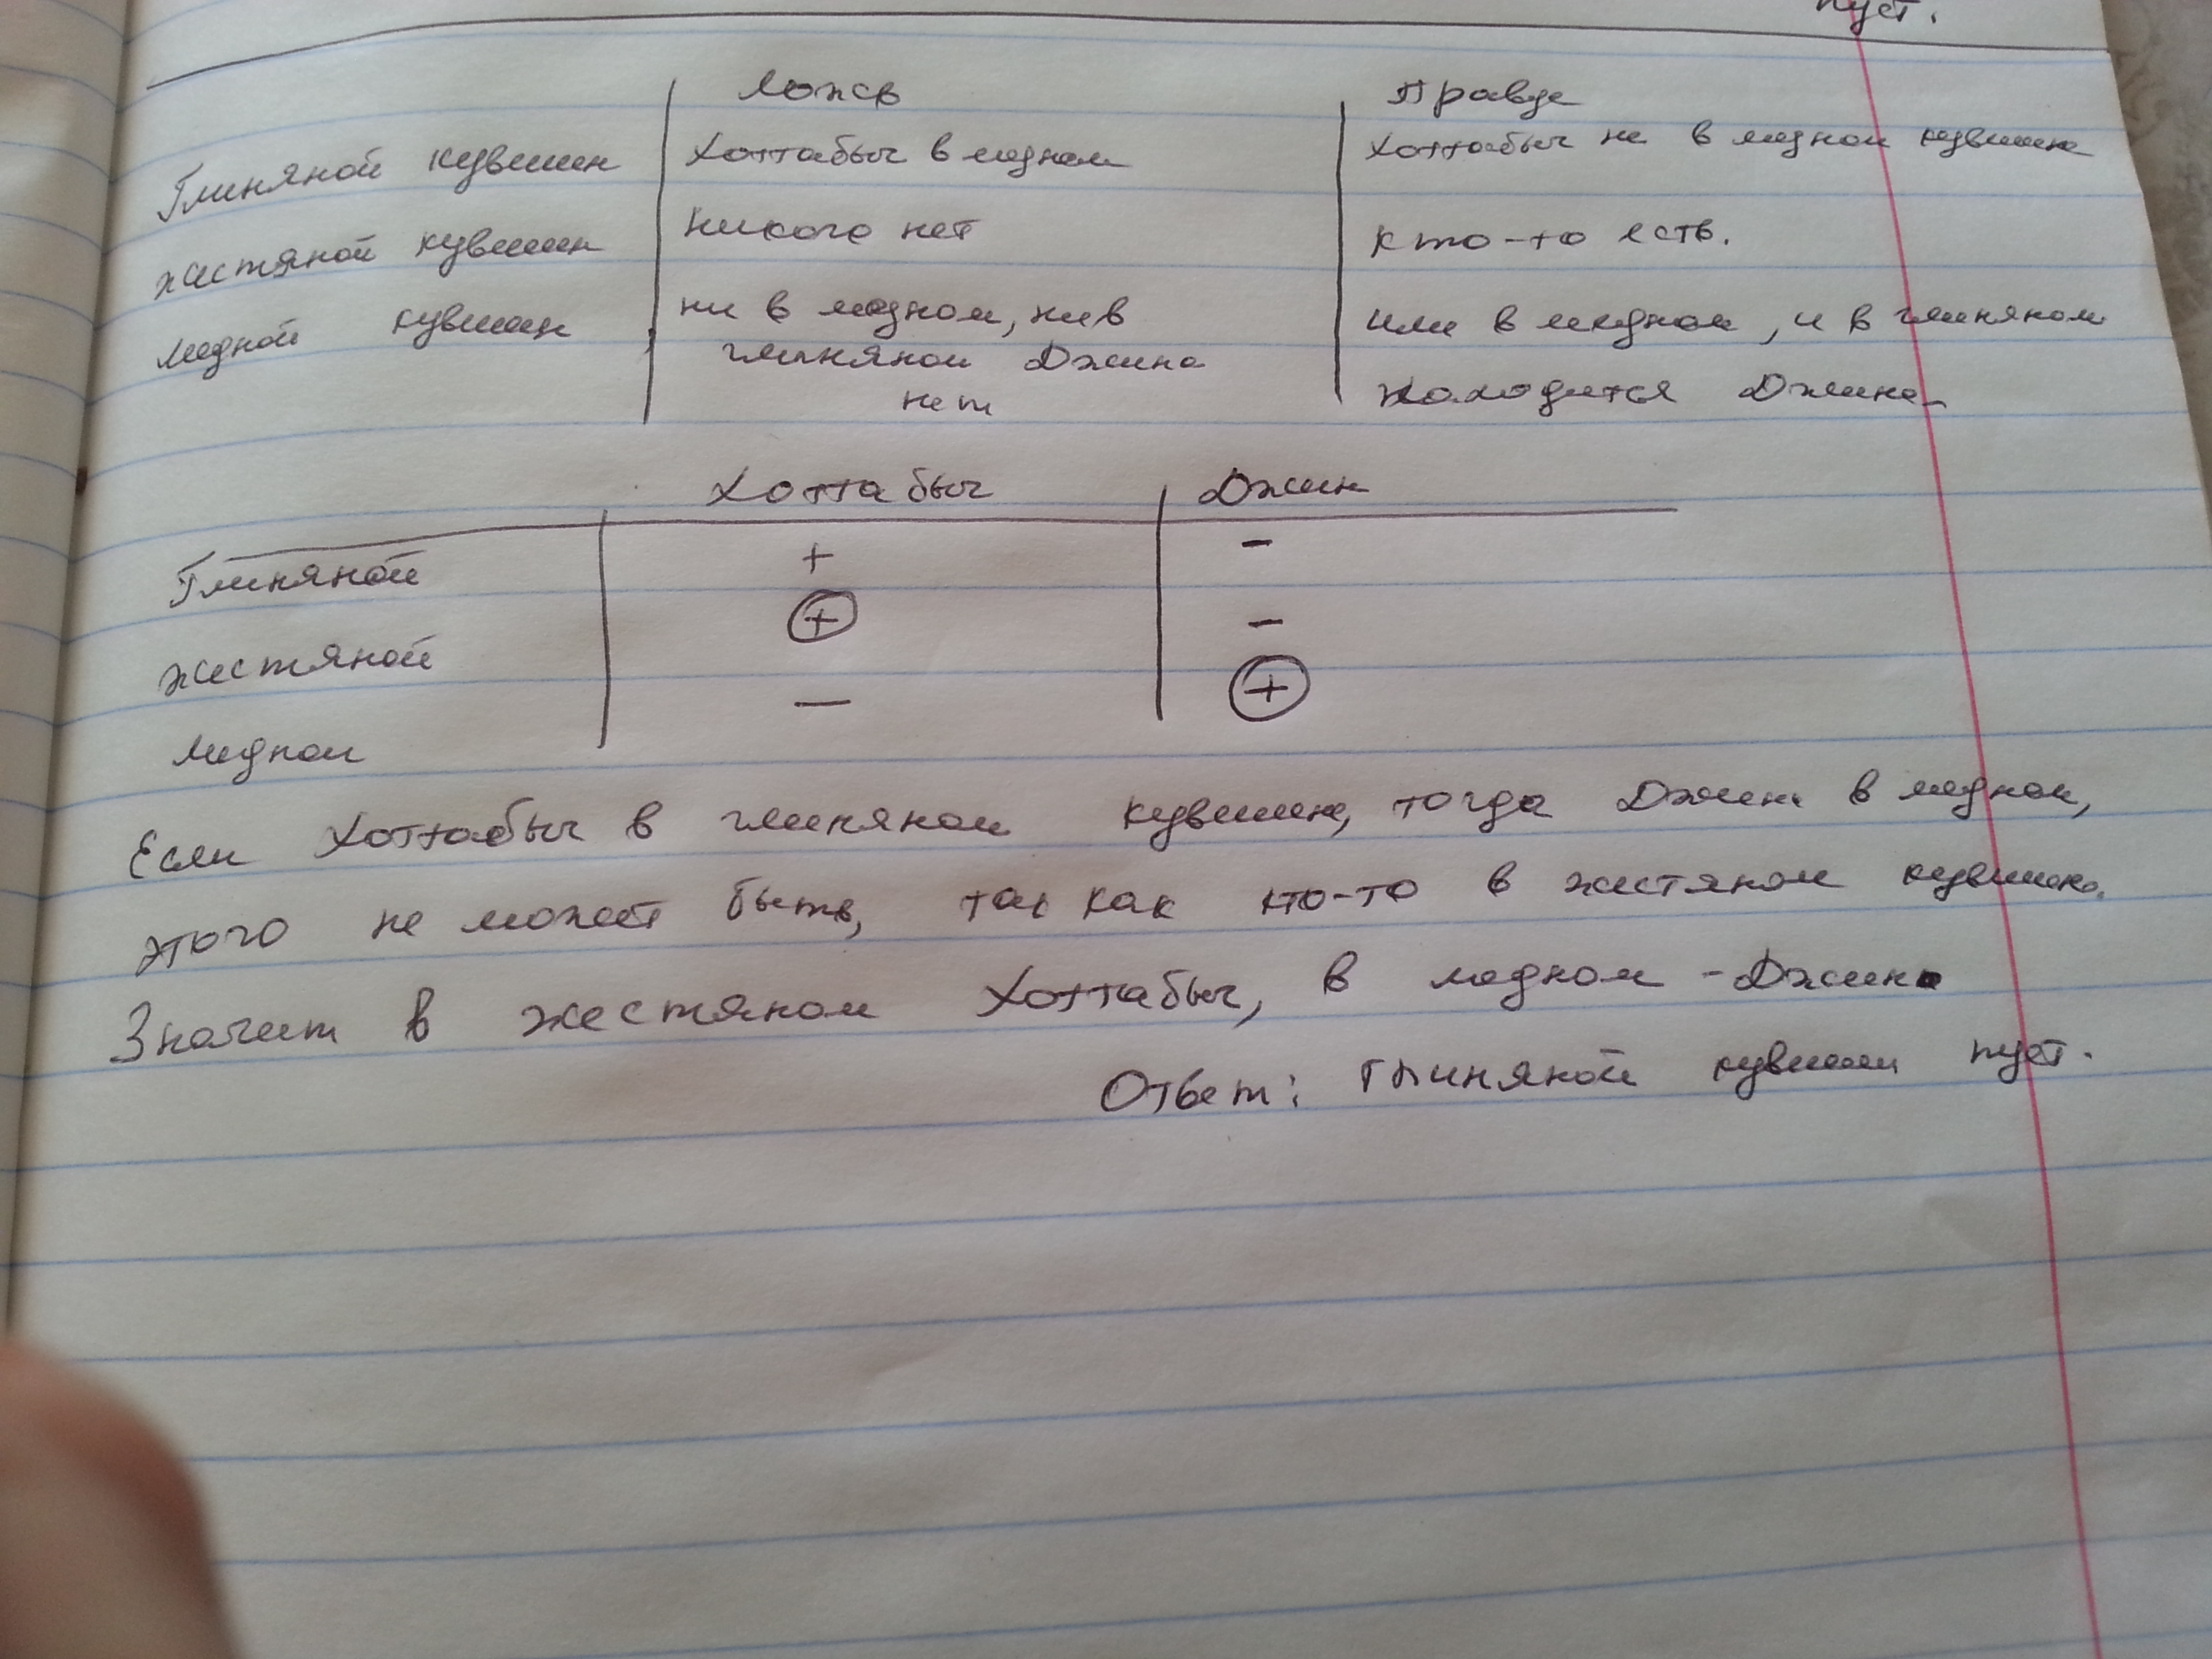 пуст.
Ложь Правда
Глиняной кувшин Хоттабыч в медном Хоттабыч не в медном кувшине
жестяной кувшин никого нет кто-то есть.
медной кувшин ни в медном, ни в или в медном, и в глиняном
глиняном Джина находится Джина
нет
Хоттабыч Джин
Глиняной + -
жестяной + -
медном - +
Если Хоттабыч в глиняном кувшине, тогда Джин в медном,
этого не может быть, так как кто-то в жестяном кувшине.
Значит в жестяном Хоттабыч, в медном - Джин
Ответ: Глиняной кувшин пуст.